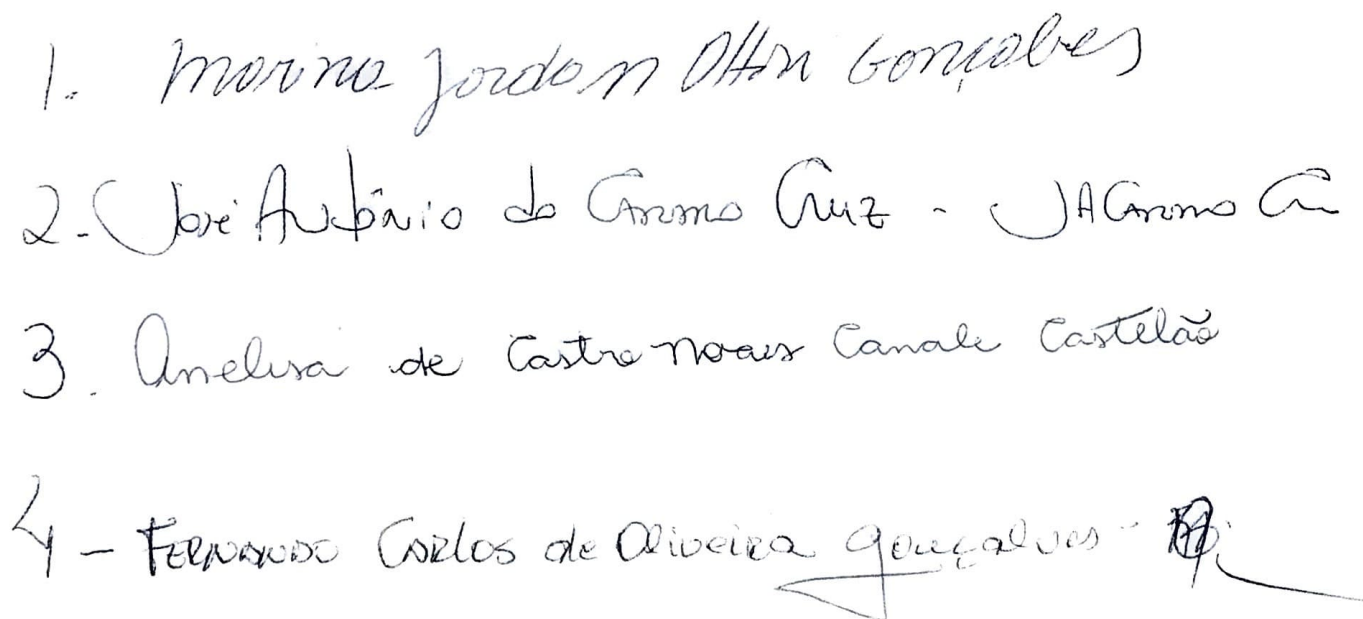 1. Marina Jordan Ottoni Gonçalves
2- José Antônio do Carmo Cruz - JACarmo
3. Anelisa de Castro Novais Canale Castelão
4 - Fernando Carlos de Oliveira Gonçalves -